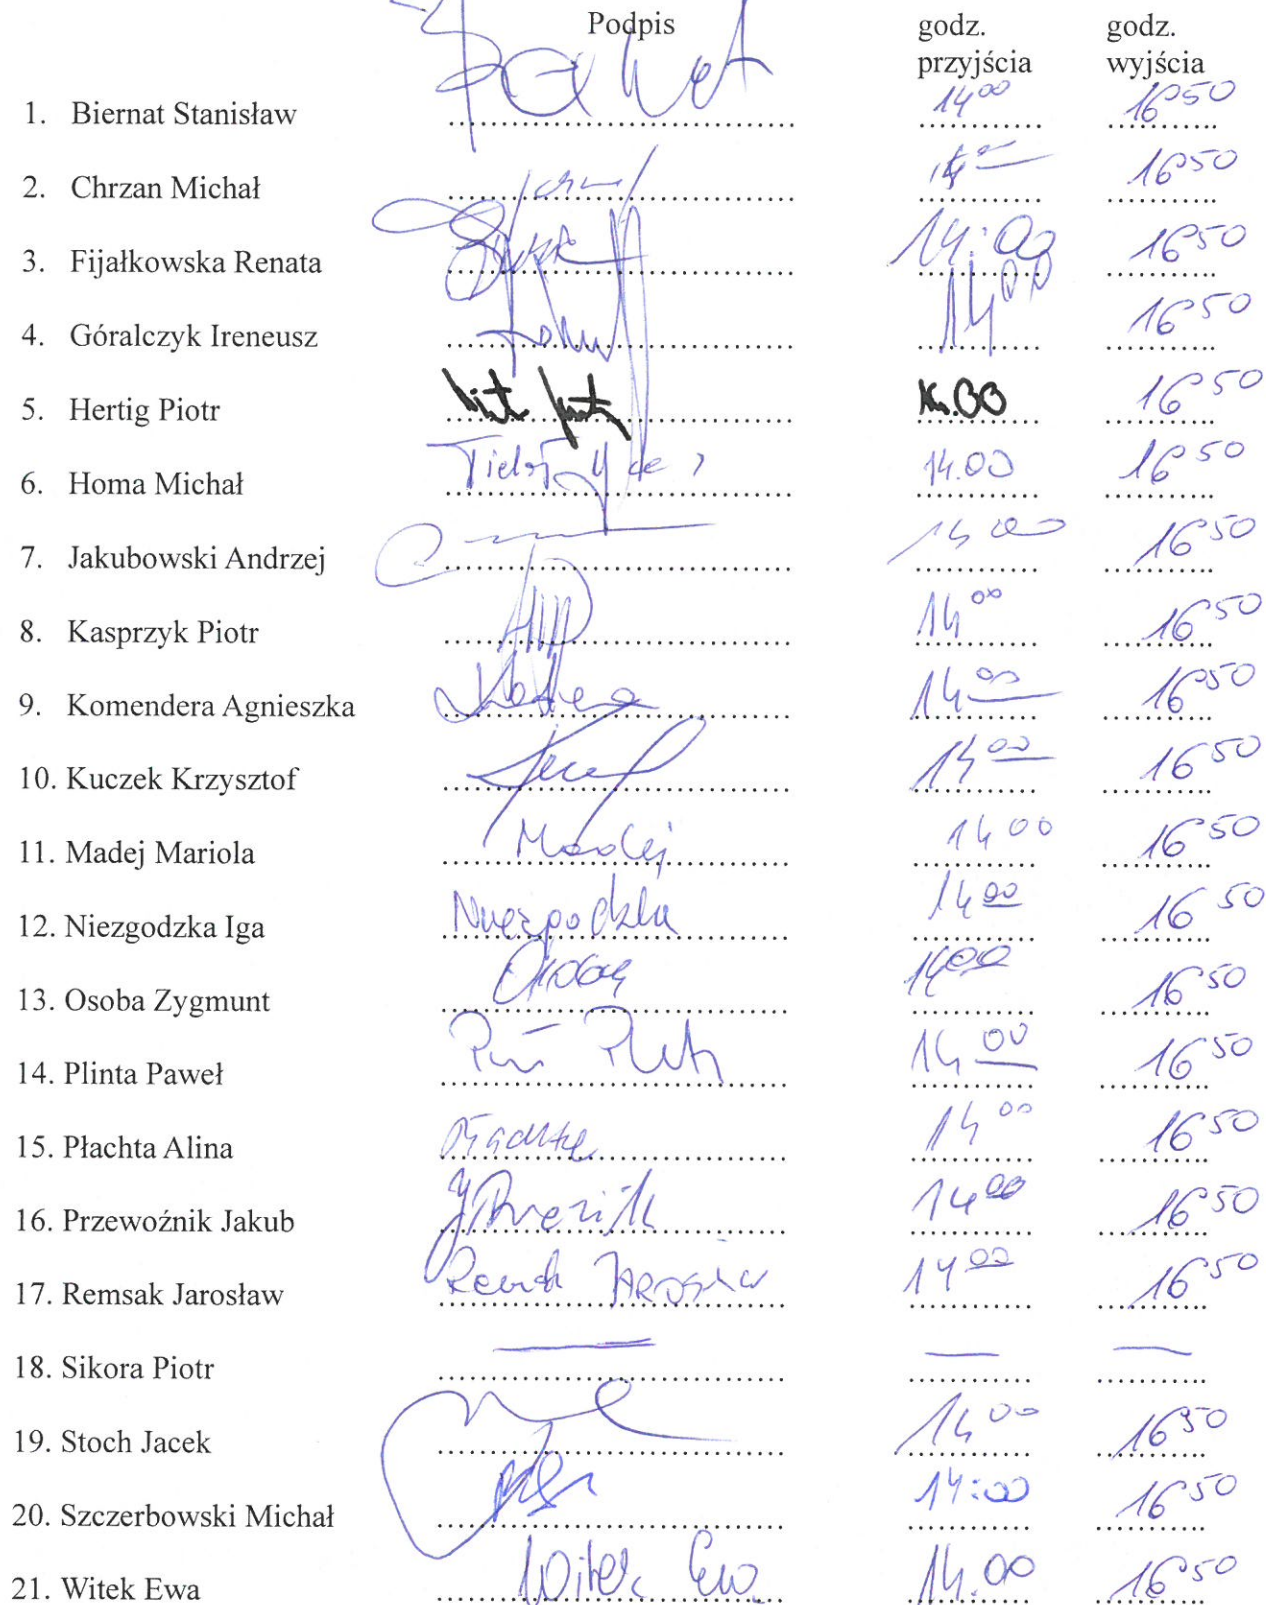 Podpis godz. godz.
przyjścia wyjścia
1. Biernat Stanisław 14⁰⁰ 16⁵⁰
2. Chrzan Michał 14⁰⁰ 16⁵⁰
3. Fijałkowska Renata 14:00 16⁵⁰
4. Góralczyk Ireneusz 14⁰⁰ 16⁵⁰
5. Hertig Piotr 16⁵⁰
6. Homa Michał 14.00 16⁵⁰
7. Jakubowski Andrzej 14 00 16⁵⁰
8. Kasprzyk Piotr 14⁰⁰ 16⁵⁰
9. Komendera Agnieszka 14⁰⁰ 16⁵⁰
10. Kuczek Krzysztof 14⁰⁰ 16⁵⁰
11. Madej Mariola Madej 14⁰⁰ 16⁵⁰
12. Niezgodzka Iga Niezgodzka 14⁰⁰ 16⁵⁰
13. Osoba Zygmunt 14⁰⁰ 16⁵⁰
14. Plinta Paweł 14⁰⁰ 16⁵⁰
15. Płachta Alina 14⁰⁰ 16⁵⁰
16. Przewoźnik Jakub 14⁰⁰ 16⁵⁰
17. Remsak Jarosław Remsak Jarosław 14⁰⁰ 16⁵⁰
18. Sikora Piotr — — —
19. Stoch Jacek 14⁰⁰ 16⁵⁰
20. Szczerbowski Michał 14:00 16⁵⁰
21. Witek Ewa Witek Ewa 14.00 16⁵⁰